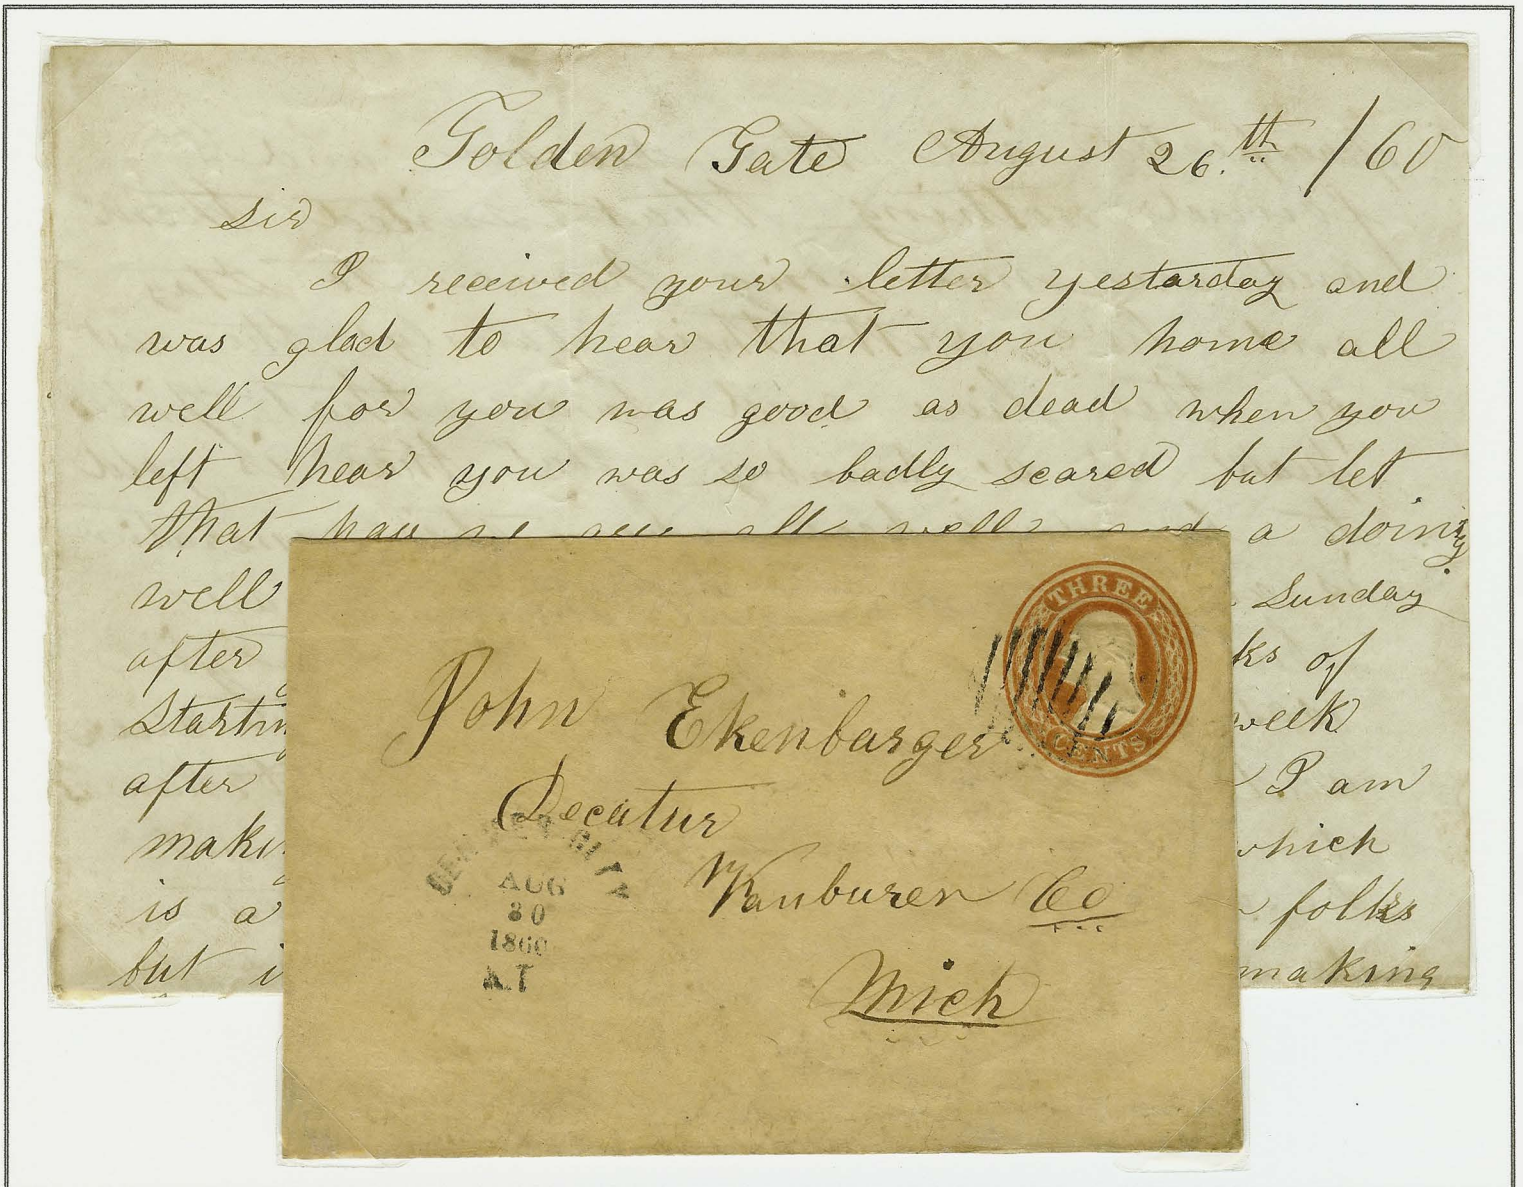 Golden Gate August 26.th /60
Sir
I received your letter yestarday and
was glad to hear that you home all
well for you was good as dead when you
left hear you was so badly scared but let
that all well and a doing
well Sunday
after of
week
after I am
which
is a folks
but making
THREE
CENTS
John Ekenbarger
Decatur
Vanburen Co
Mich
DENVER CITY
AUG
30
1860
K.T